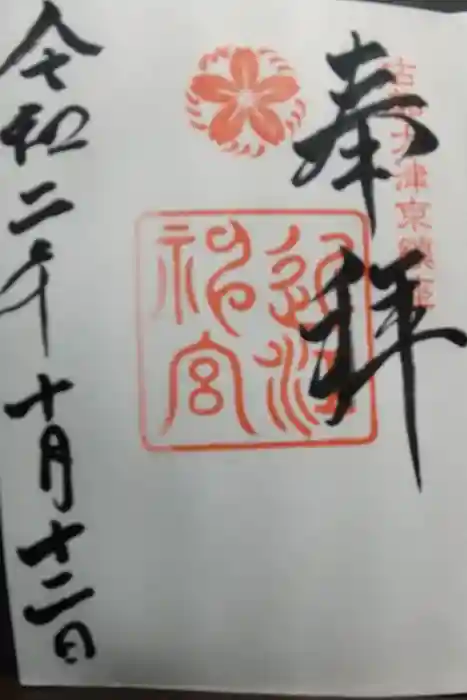 奉拝
古都大津京鎮座
近江
神宮
令和二年十月十二日